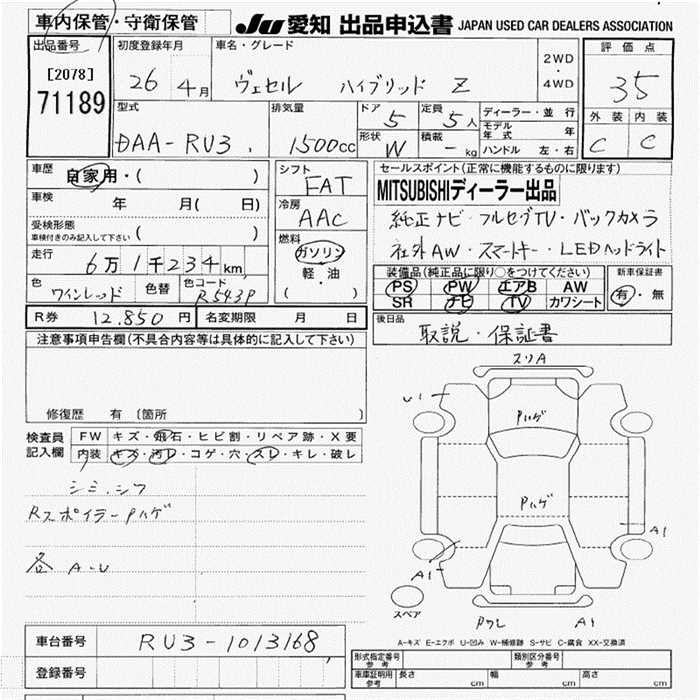 車内保管・守衛保管
JU 愛知 出品申込書 JAPAN USED CAR DEALERS ASSOCIATION
出品番号
[2078]
71189
初度登録年月
26 4月
車名・グレード
ヴェゼル ハイブリッド Z
2WD
・
4WD
評価点
35
外装 内装
C C
型式
DAA-RU3
排気量
1500cc
ドア 5
形状 W
定員 5人
積載 - kg
ディーラー・並行
モデル年式 年
ハンドル 左・右
車歴
自家用・( )
車検 年 月( 日)
受検形態
車検付きのみ記入して下さい ( )
走行
6万1千234km
色 ワインレッド 色替 色コード R543P
シフト
FAT
冷房
AAC
燃料
ガソリン
軽・油
( )
セールスポイント(正常に機能するものに限ります)
MITSUBISHIディーラー出品
純正ナビ・フルセグTV・バックカメラ
社外AW・スマートキー・LEDヘッドライト
装備品(純正品に限り○をつけてください)
PS PW エアB AW
SR ナビ TV カワシート
新車保証書
有・無
R券 12.850円 名変期限 月 日
後日品
取説・保証書
注意事項申告欄(不具合内容等は具体的に記入して下さい)
修復歴 有 〔箇所 〕
検査員
記入欄
FW キズ・飛石・ヒビ割・リペア跡・X要
内装 キズ・汚レ・コゲ・穴・スレ・キレ・破レ
シミ.シワ
Rスポイラー Pハゲ
各 A-U
スリA
U1
Pハゲ
Pハゲ
A1
A1
スペア
A1
A-キズ E-エクボ U-凹み W-補修跡 S-サビ C-腐食 XX-交換済
車台番号 RU3-1013168
登録番号
形式指定番号
参考
類別区分番号
参考
車庫証明用
参考
長さ cm 幅 cm 高さ cm